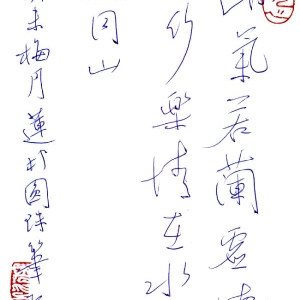 氣若蘭虛
竹樂情在水
同山
未梅月蓮於圓珠筆